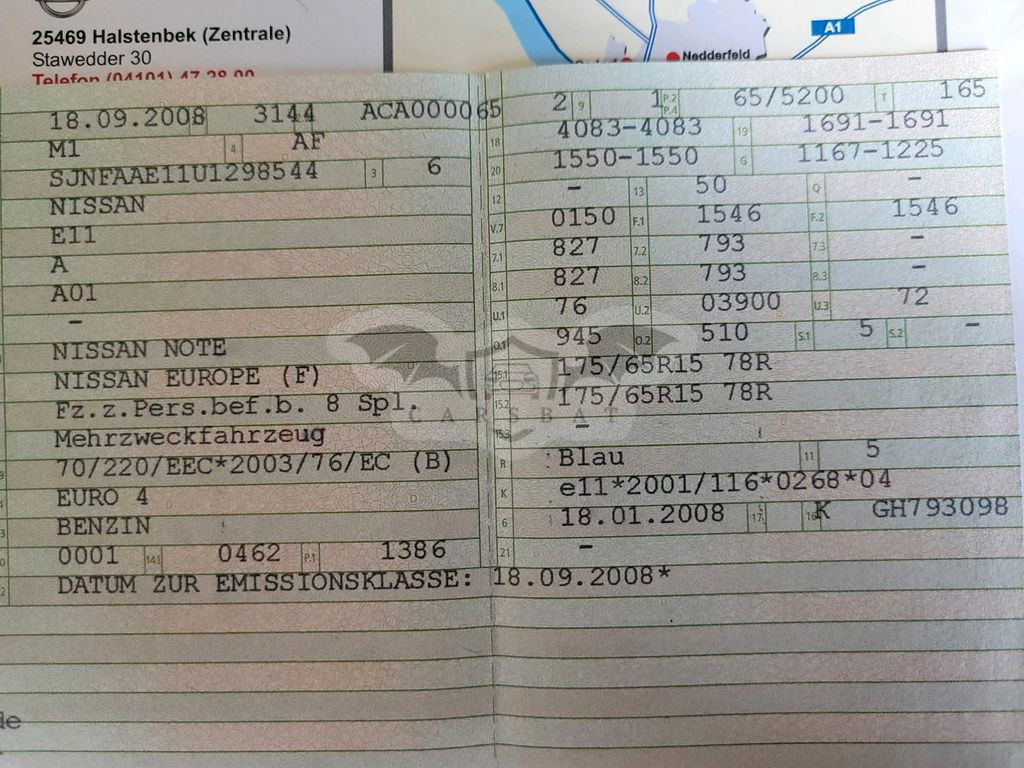 25469 Halstenbek (Zentrale)
Stawedder 30
Telefon (04101) 47 28 00
A1
Nedderfeld
18.09.2008 3144 ACA000065
M1 4 AF
SJNFAAE11U1298544 3 6
NISSAN
E11
A
A01
-
NISSAN NOTE
NISSAN EUROPE (F)
Fz.z.Pers.bef.b. 8 Spl.
Mehrzweckfahrzeug
70/220/EEC*2003/76/EC (B)
EURO 4
BENZIN
0001 14.1 0462 P.1 1386
DATUM ZUR EMISSIONSKLASSE: 18.09.2008*
2 9 1 P.2 P.4 65/5200 T 165
18 4083-4083 19 1691-1691
20 1550-1550 G 1167-1225
12 - 13 50 Q -
V.7 0150 F.1 1546 F.2 1546
7.1 827 7.2 793 7.3 -
8.1 827 8.2 793 8.3 -
U.1 76 U.2 03900 U.3 72
O.1 945 O.2 510 S.1 5 S.2 -
15.1 175/65R15 78R
15.2 175/65R15 78R
15.3 -
R Blau 11 5
K e11*2001/116*0268*04
6 18.01.2008 17 16 K GH793098
21 -
CARSBAT
de